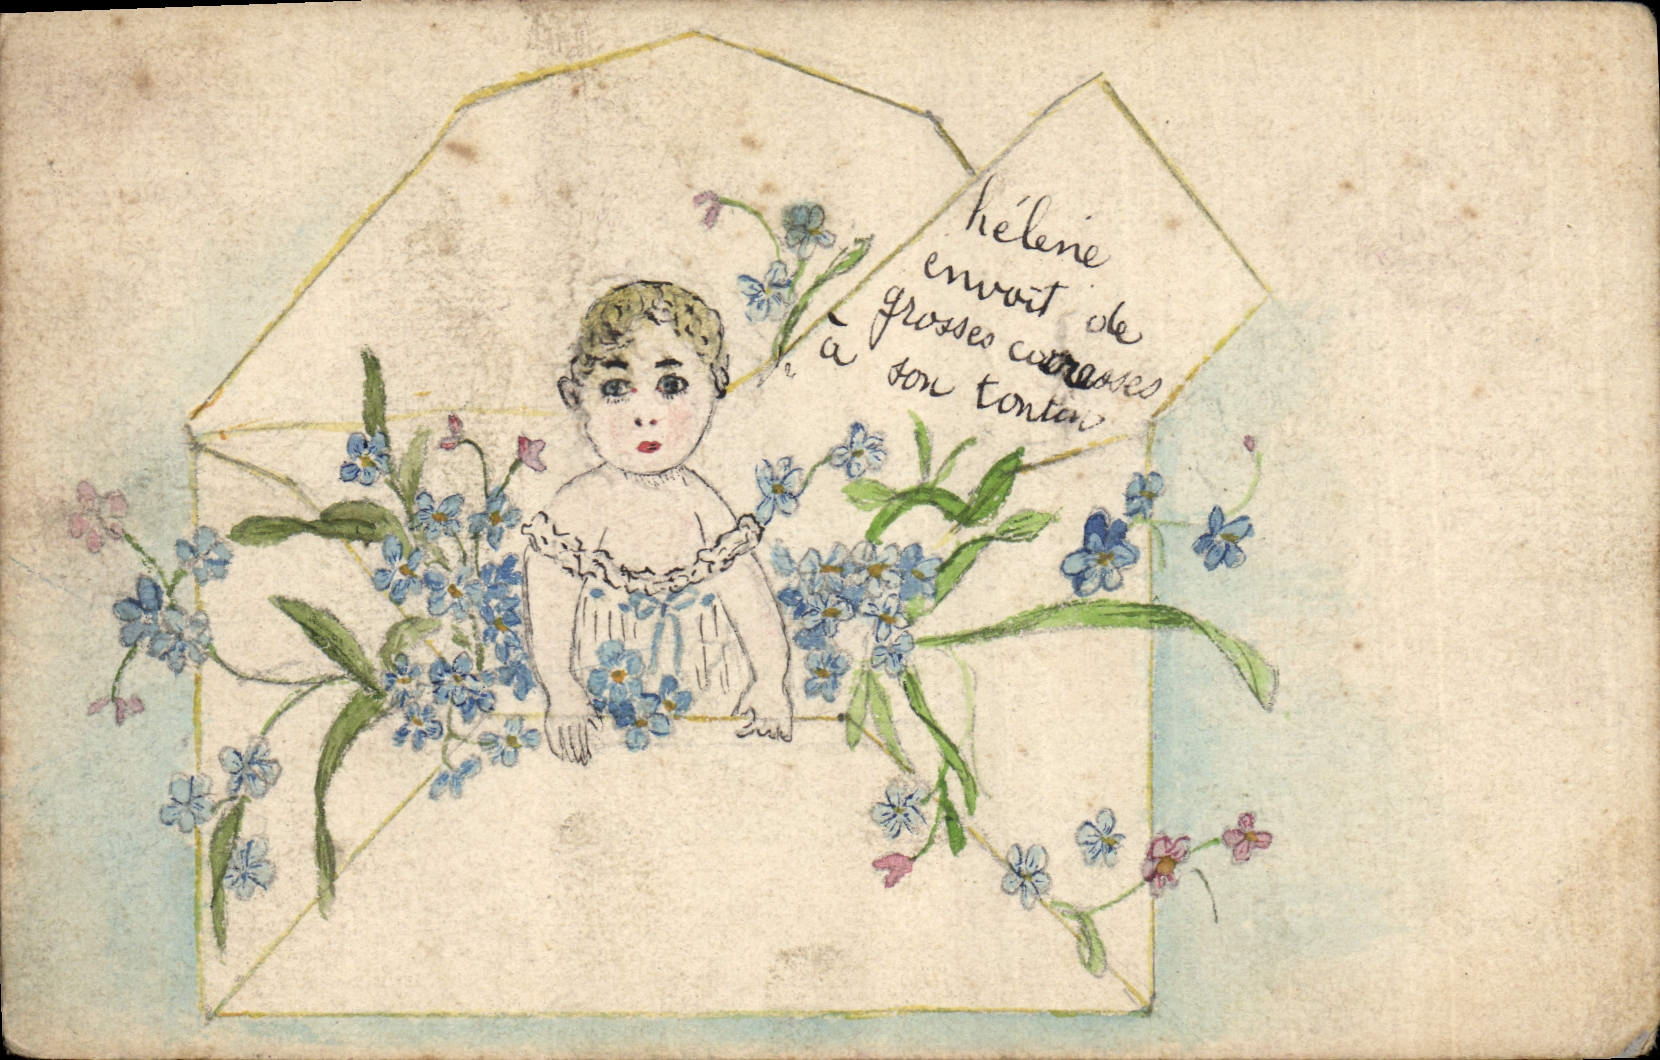 hélène
envoit de
grosses caresses
à son tonton